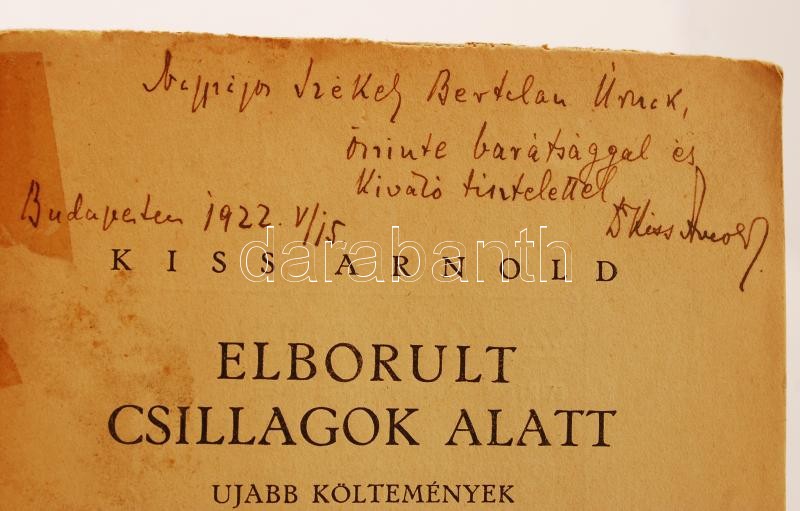 Nagyságos Székely Bertalan Úrnak,
őszinte barátsággal és
Kiváló tisztelettel
Budapesten 1922. V/15
Dr Kiss Arnold
KISS ARNOLD
darabanth
ELBORULT
CSILLAGOK ALATT
UJABB KÖLTEMÉNYEK